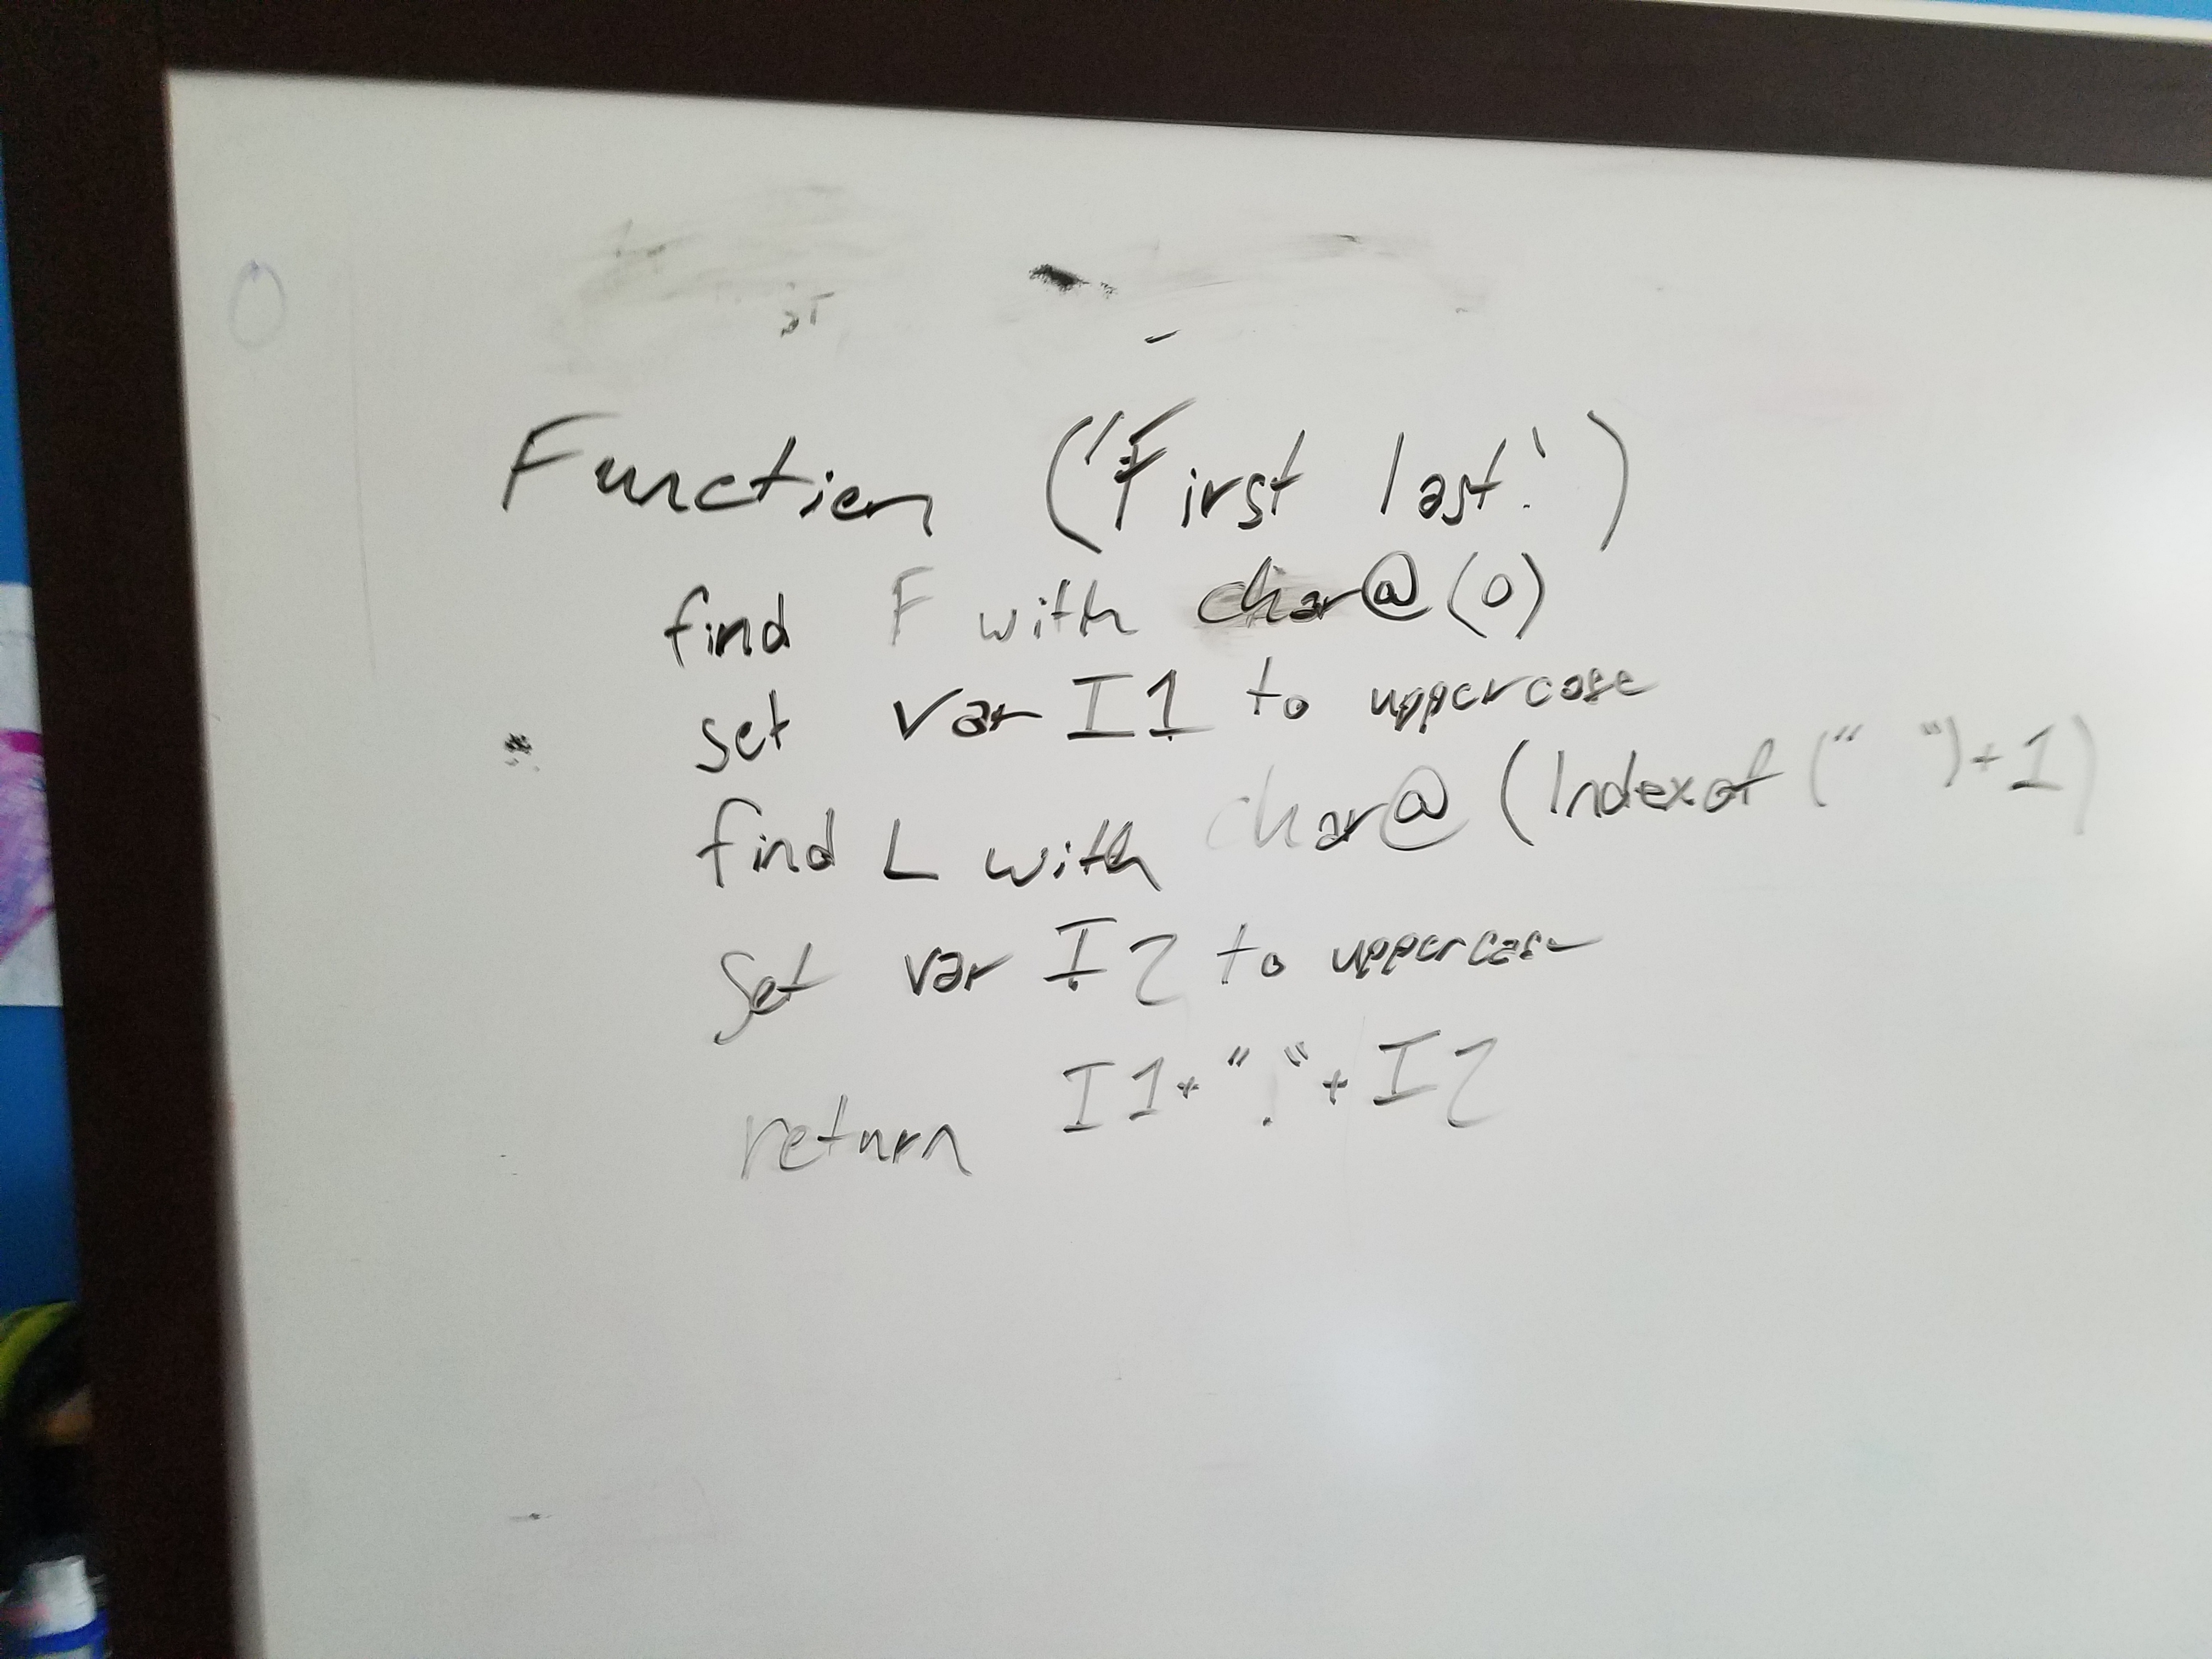 Function ('First last.')
find F with char@(0)
set var I1 to uppercase
find L with char@ (Indexof (" ")+1)
Set var I2 to uppercase
return I1+"."+I2